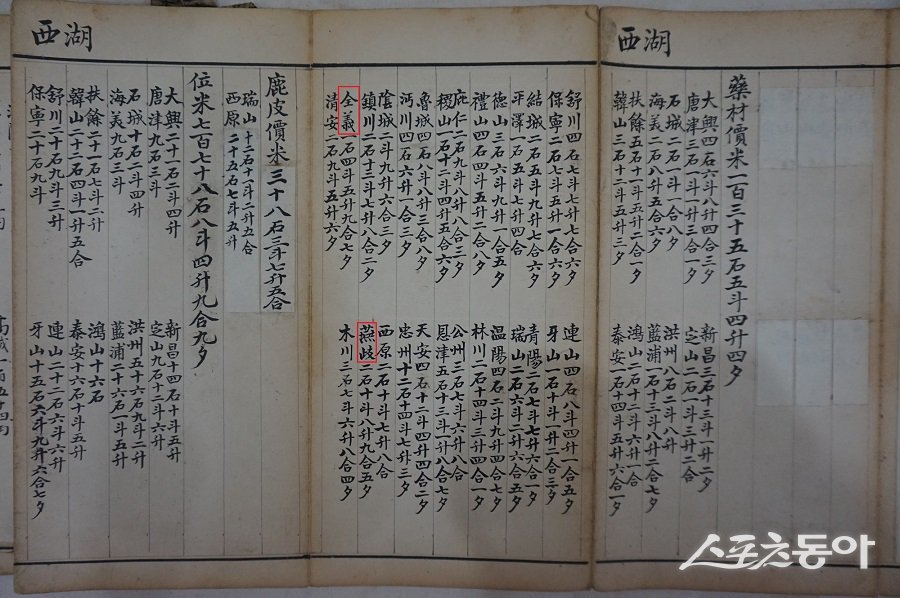 西湖
藥材價米一百三十五石五斗四升四夕
大興四石六斗八升四合三夕
新昌三石十三斗一升二夕
唐津三石一斗一升三合一夕
定山二石一斗三升二合
石城二石二斗一合八夕
洪州八石二斗八升
海美二石八斗五合六夕
藍浦一石十三斗八升二合七夕
扶餘五石十一斗五升二合一夕
鴻山二石十二斗六升一合
韓山五石十一斗一升三夕
泰安一石十四斗五升六合一夕
舒川四石七斗七升七合六夕
連山四石八斗四升一合五夕
保寧二石七斗五升一合六夕
牙山一石十斗一升二合三夕
結城二石五斗九升七合六夕
青陽二石七斗七升六合一夕
平澤一石五斗七升四合
瑞山二石六斗二升六合五夕
德山三石六斗九升一合五夕
溫陽四石二斗九升四合七夕
禮山四石四斗五升二合八夕
林川一石十四斗三升四合一夕
庇仁二石九斗八升二合三夕
公州三石七斗六升八合
稷山一石十二斗四升五合六夕
恩津五石十三斗一升八合七夕
魯城四石八斗八升三合八夕
天安四石十二斗四升四合二夕
沔川四石六升一合三夕
忠州十二石十四斗七升三夕
陰城二斗九升六合三夕
西原二石十斗七升八合
鎮川二石十三斗七升八合二夕
燕岐二石十斗八升九合五夕
全義一石四斗五升九合七夕
木川三石七斗六升八合四夕
清安二石九斗五升六夕
西湖
鹿皮價米三十八石三斗七升五合
瑞山十二石十二斗二升五合
西原二十五石七斗五升
位米七百七十八石八斗四升九合九夕
大興二十一石二斗四升
新昌十四石十斗五升
唐津九石三斗
定山九石十二斗六升
石城十石四斗四升
洪州五十六石九斗二升
海美九石三斗
藍浦二十六石一斗五升
扶餘二十一石七斗二升
鴻山十六石
韓山二十二石四斗一升五合
泰安十六石十斗五升
舒川二十石九斗三升
連山二十二石六斗六升
保寧二十石九斗
牙山十五石六斗九升六合七夕
스포츠동아